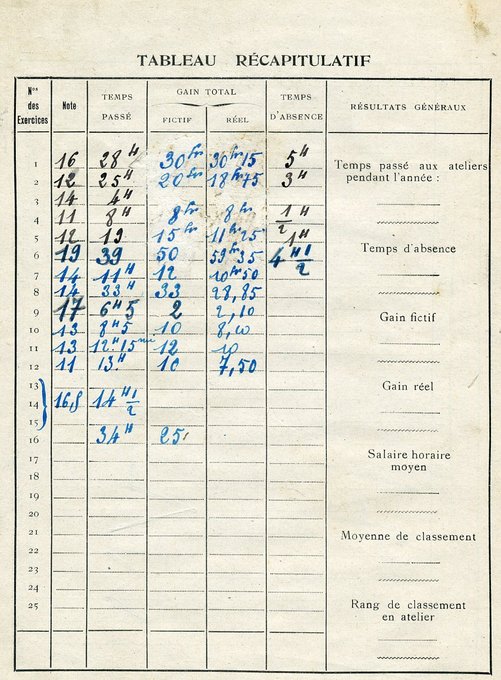 TABLEAU RÉCAPITULATIF
Nos des Exercices Note TEMPS PASSÉ GAIN TOTAL FICTIF RÉEL TEMPS D'ABSENCE RÉSULTATS GÉNÉRAUX
1 16 28H 30fr 30fr15 5H
2 12 25H 20fr 18fr75 3H
3 14 4H
4 11 8H 8fr 8fr 1/2H
5 12 19 15fr 11fr25 1H
6 19 39 50 59fr35 4H1/2
7 14 11H 12 10fr50
8 14 33H 33 28,85
9 17 6H5 2 2,10
10 13 8H5 10 8,10
11 13 12H.15 12 10
12 11 13H 10 7,50
13
14 16,5 14H1/2
15
16 34H 25
17
18
19
20
21
22
23
24
25
Temps passé aux ateliers
pendant l'année :
Temps d'absence
Gain fictif
Gain réel
Salaire horaire
moyen
Moyenne de classement
Rang de classement
en atelier